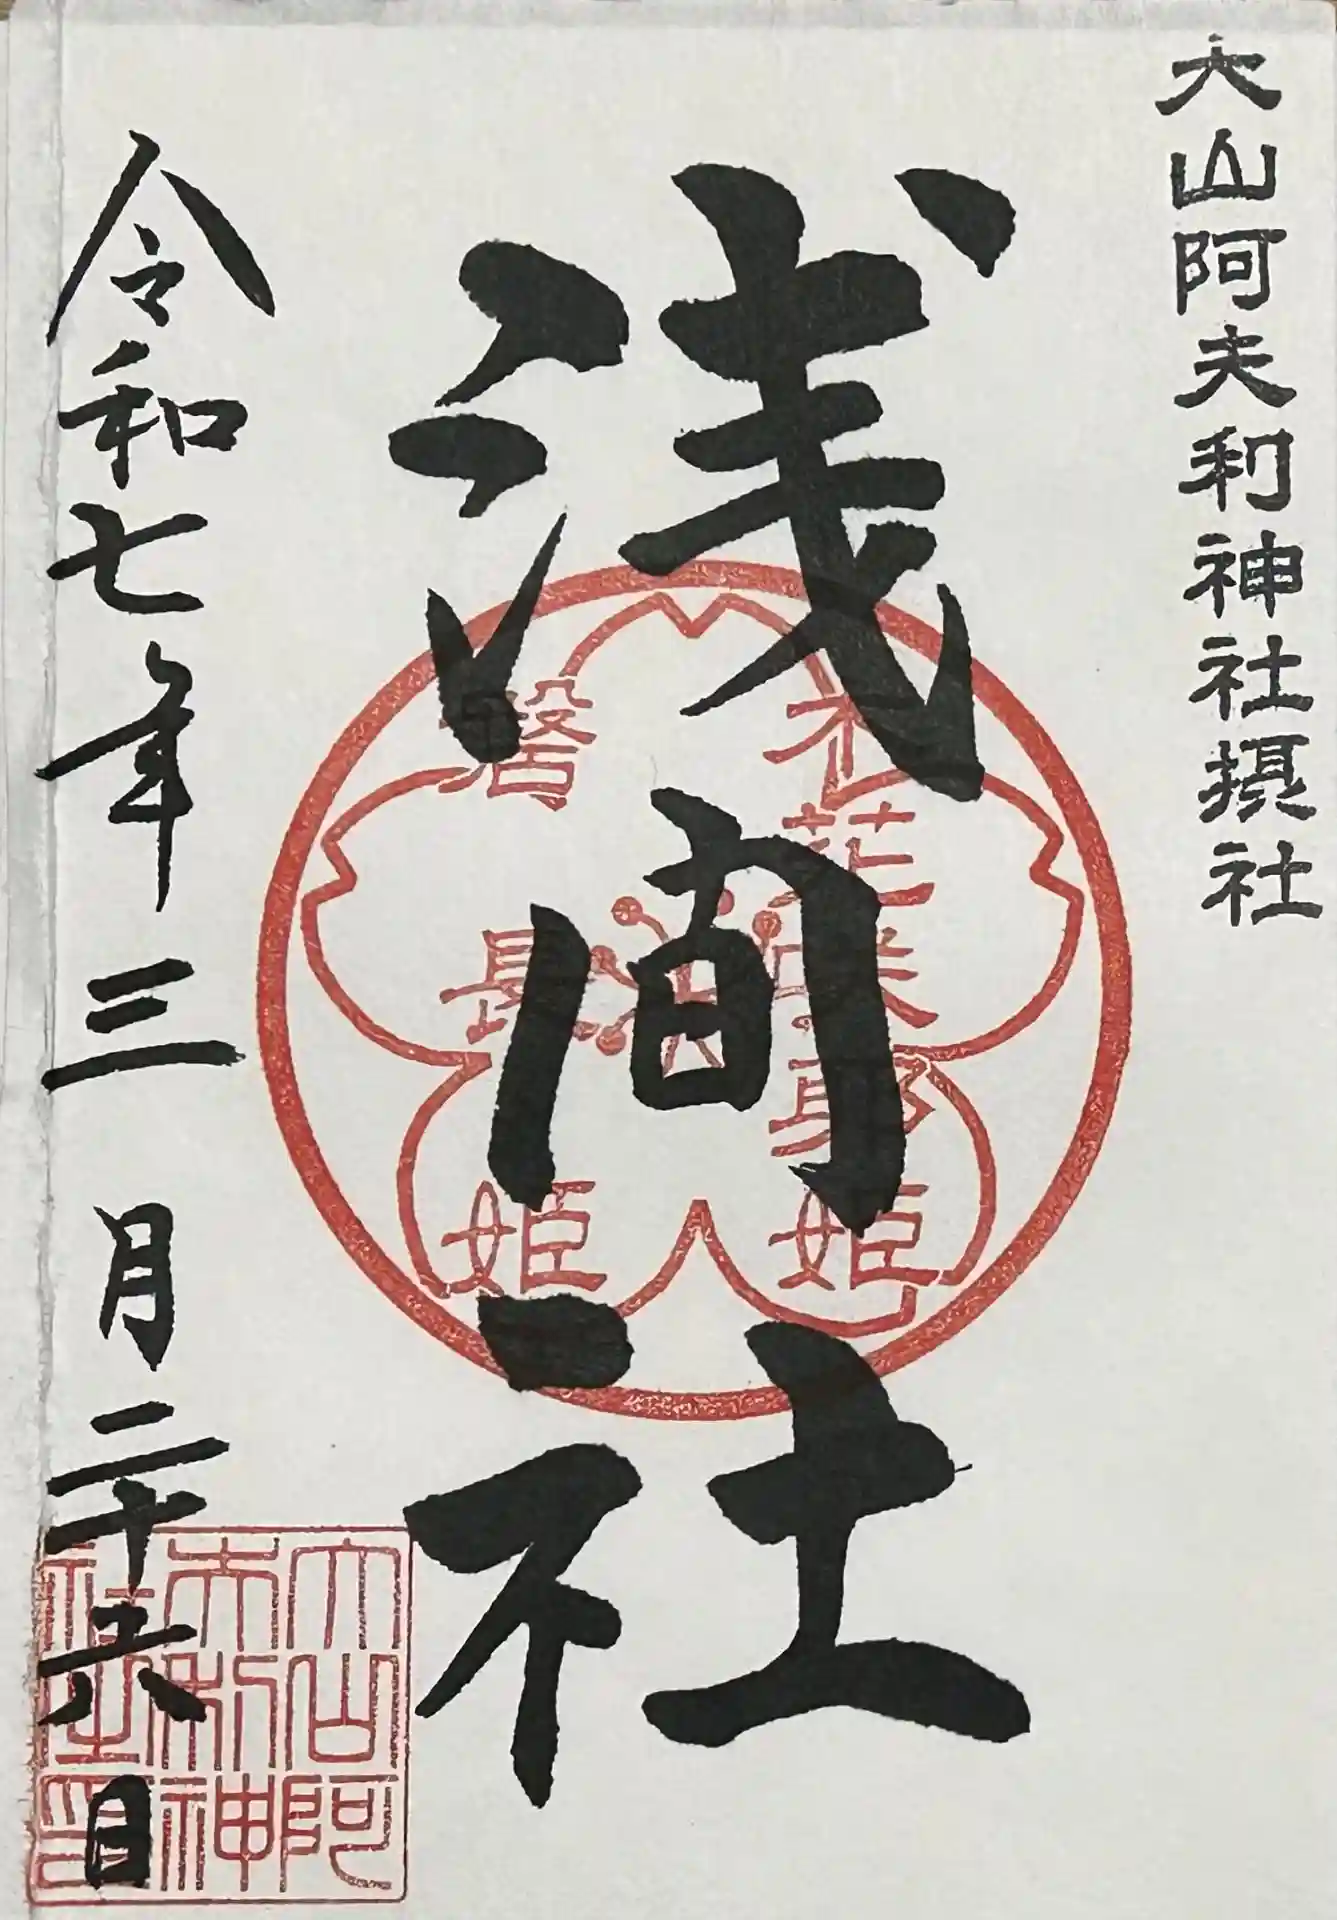 大山阿夫利神社摂社
浅間社
木花咲耶姫
磐長姫
令和七年三月二十六日
大山阿
夫利神
社之印